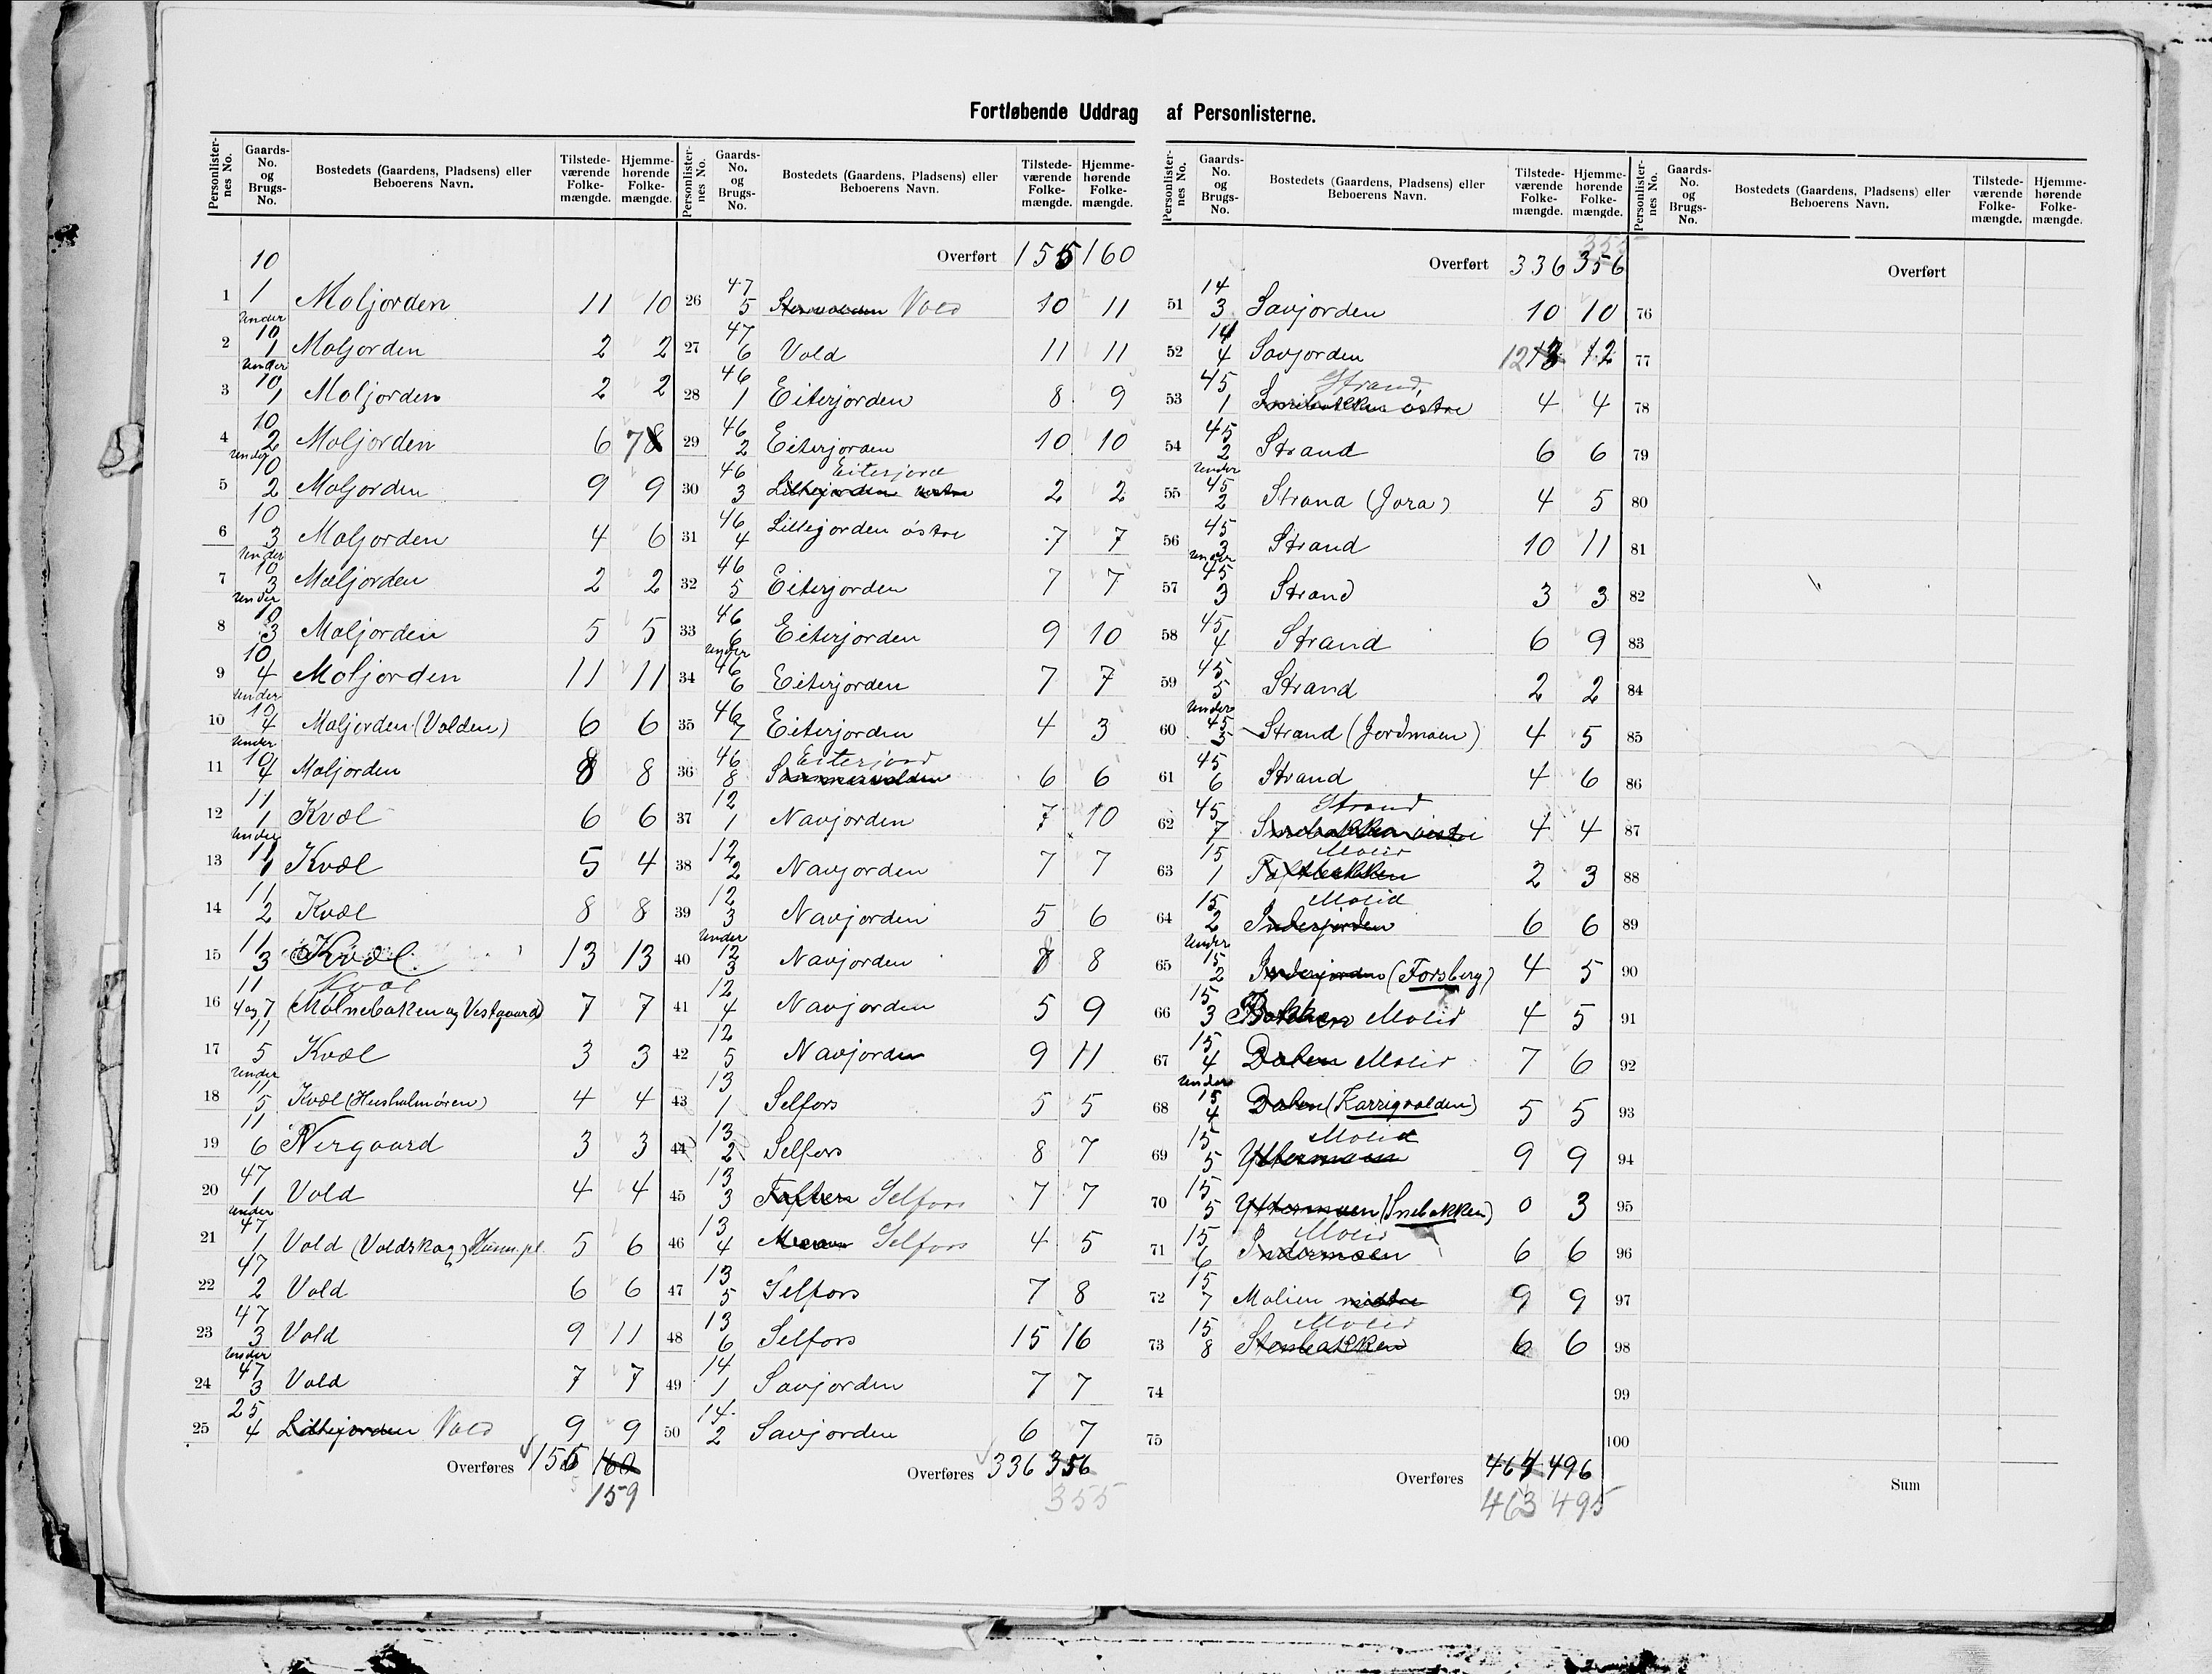 Fortløbende Uddrag af Personlisterne.
Personlister-nes No. Gaards-No. og Brugs-No. Bostedets (Gaardens, Pladsens) eller Beboerens Navn. Tilstede-værende Folke-mængde. Hjemme-hørende Folke-mængde.
1 10 1 Moljorden 11 10
2 Under 10 1 Moljorden 2 2
3 Under 10 1 Moljorden 2 2
4 10 2 Moljorden 6 7 8
5 Under 10 2 Moljorden 9 9
6 10 3 Moljorden 4 6
7 Under 10 3 Moljorden 2 2
8 Under 10 3 Moljorden 5 5
9 10 4 Moljorden 11 11
10 Under 10 4 Moljorden (Volden) 6 6
11 Under 10 4 Moljorden 8 8
12 11 1 Kvæl 6 6
13 Under 11 1 Kvæl 5 4
14 11 2 Kvæl 8 8
15 11 3 Kvæl 13 13
16 11 4 og 7 Kvæl (Mølnebaken og Vestgaard) 7 7
17 11 5 Kvæl 3 3
18 Under 11 5 Kvæl (Husholmøren) 4 4
19 11 6 Nergaard 3 3
20 47 1 Vold 4 4
21 Under 47 1 Vold (Voldskog) Husm.pl. 5 6
22 47 2 Vold 6 6
23 47 3 Vold 9 11
24 Under 47 3 Vold 7 7
25 25 4 Lillejorden Vold 9 9
Overføres 155 160
159
Personlister-nes No. Gaards-No. og Brugs-No. Bostedets (Gaardens, Pladsens) eller Beboerens Navn. Tilstede-værende Folke-mængde. Hjemme-hørende Folke-mængde.
Overført 155 160
26 47 5 Vold 10 11
27 47 6 Vold 11 11
28 46 1 Eiterjorden 8 9
29 46 2 Eiterjorden 10 10
30 46 3 Lillejorden vestre Eiterjord 2 2
31 46 4 Lillejorden østre 7 7
32 46 5 Eiterjorden 7 7
33 46 6 Eiterjorden 9 10
34 Under 46 6 Eiterjorden 7 7
35 46 7 Eiterjorden 4 3
36 46 8 Sommervolden Eiterjord 6 6
37 12 1 Navjorden 7 10
38 12 2 Navjorden 7 7
39 12 3 Navjorden 5 6
40 Under 12 3 Navjorden 8 8
41 12 4 Navjorden 5 9
42 12 5 Navjorden 9 11
43 13 1 Selfors 5 5
44 13 2 Selfors 8 7
45 13 3 Toften Selfors 7 7
46 13 4 Moen Selfors 4 5
47 13 5 Selfors 7 8
48 13 6 Selfors 15 16
49 14 1 Savjorden 7 7
50 14 2 Savjorden 6 7
Overføres 336 356
355
Personlister-nes No. Gaards-No. og Brugs-No. Bostedets (Gaardens, Pladsens) eller Beboerens Navn. Tilstede-værende Folke-mængde. Hjemme-hørende Folke-mængde.
355
Overført 336 356
51 14 3 Savjorden 10 10
52 14 4 Savjorden 12 13 12
53 45 1 Snebakken østre Strand 4 4
54 45 2 Strand 6 6
55 Under 45 2 Strand (Jora) 4 5
56 45 3 Strand 10 11
57 Under 45 3 Strand 3 3
58 45 4 Strand 6 9
59 45 5 Strand 2 2
60 Under 45 5 Strand (Jordmoen) 4 5
61 45 6 Strand 4 6
62 45 7 Snebakken vestre Strand 4 4
63 15 1 Toftbakken Molid 2 3
64 15 2 Inderjorden Molid 6 6
65 Under 15 2 Inderjorden (Forsberg) 4 5
66 15 3 Bakken Molid 4 5
67 15 4 Dalen Molid 7 6
68 Under 15 4 Dalen (Karrigvolden) 5 5
69 15 5 Yttermoen Molid 9 9
70 15 5 Yttermoen (Snebakken) 0 3
71 15 6 Indermoen Molid 6 6
72 15 7 Molien midtre 9 9
73 15 8 Stenbakken Molid 6 6
74
75
Overføres 464 496
463 495
Personlister-nes No. Gaards-No. og Brugs-No. Bostedets (Gaardens, Pladsens) eller Beboerens Navn. Tilstede-værende Folke-mængde. Hjemme-hørende Folke-mængde.
Overført
76
77
78
79
80
81
82
83
84
85
86
87
88
89
90
91
92
93
94
95
96
97
98
99
100
Sum